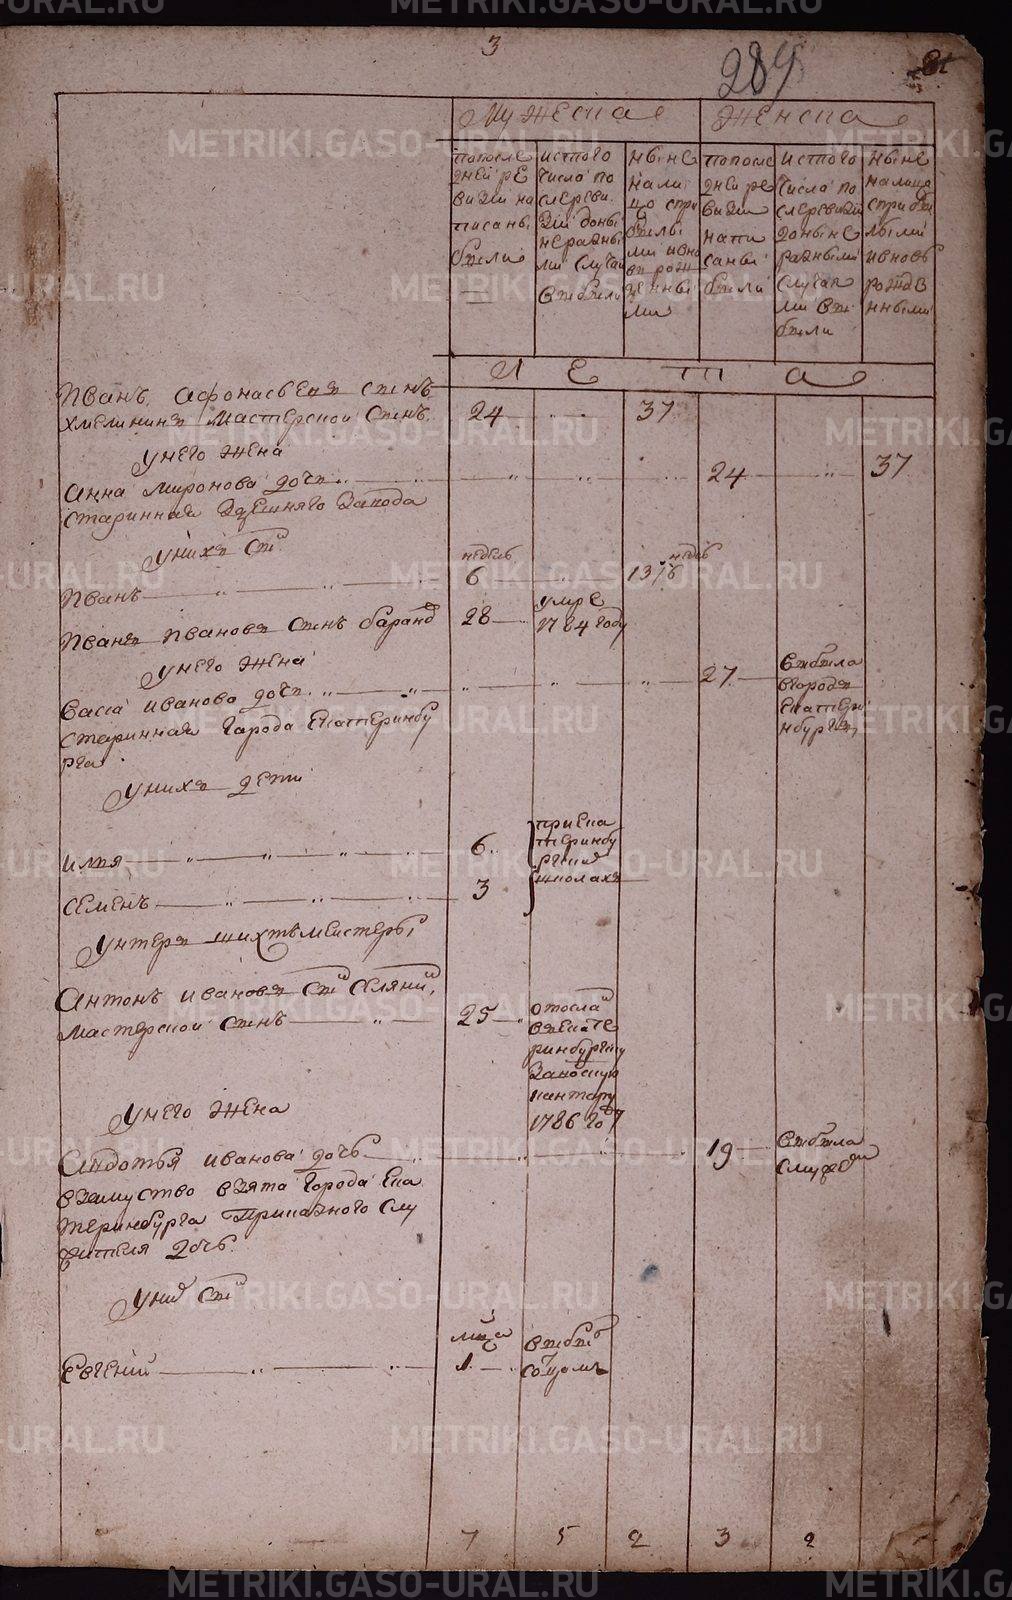 3
289
Мужеска
Женска
попосле
дней ре
визии на
писаны
были
истого
числа по
следреви
зии доны
не разны
ми случаи
выбыли
ныне
нали
цо спри
былы
ми ивно
вь рож
денны
ми
попосле
дней ре
визии
напи
саны
были
истого
числа по
следревизи
доныне
разными
случая
ми вы
были
ныне
налицо
сприбы
лыми
ивновь
рожде
нными
Лета
Иванъ Афонасьевъ сынъ
Хмелининъ мастерской сынъ 24 37
унего жена
Анна Миронова дочь 24 37
старинная здешняго завода
унихъ сынъ
Иванъ недель 6 13 / 6 недель
Иванъ Ивановъ сынъ 28 умре
1784 году
унего жена
Васса Иванова дочь 27 выбыла
вгородъ
Екатери
нбургъ
старинная города Екатеринбу
рга
унихъ дети
Илья 6
Семенъ 3
приека
теринбу
ргской
школахъ
Унтеръ шихтъмейстеры
Антонъ Ивановъ сынъ
мастерской сынъ 25 отосланъ
векате
ринбургскую
заводскую
кантору
1786 году
унего жена
Авдотья Иванова дочь 19 выбыла
смужем
взамуство взята города Ека
теринбурга приказного слу
жителя дочь
уних сынъ
Евгений месяца 1 выбылъ
сотцомъ
7 5 2 3 2
METRIKI.GASO-URAL.RU